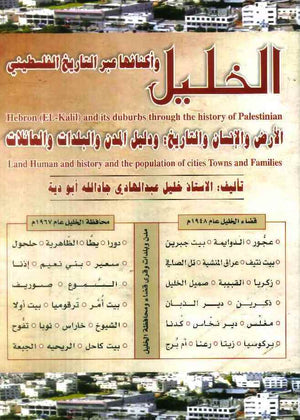 الخليل
وأكنافها عبر التاريخ الفلسطيني
Hebron (EL-Kahl) and its duburbs through the history of Palestinian
الأرض والإنسان والتاريخ: ودليل المدن والبلدات والعائلات
Land Human and history and the population of cities Towns and Families
تأليف: الاستاذ خليل عبدالهادي جادالله ابو دية
قضاء الخليل عام ١٩٤٨م
عجور • الدوايمة • بيت جبرين
بيت نتيف • عراق المنشية • تل الصافي
زكريا • القبيبة • صميل الخليل
ذكرين • دير الدبان
مغلس • دير نخاس • كدنا
بركوسيا • زيتا • رعنا • أم برج
مدن وبلدات وقرى قضاء ومحافظة الخليل
محافظة الخليل عام ١٩٦٧م
دورا • يطا • الظاهرية • حلحول
سعير • بني نعيم • إذنا
السموع • صوريف
بيت أمر • ترقوميا • بيت أولا
الشيوخ • خاراس • نوبا • تفوح
بيت كاحل • الريحيه • الجبعة